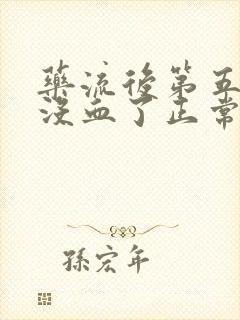 藥流後第五
沒血了正常
孫宏年